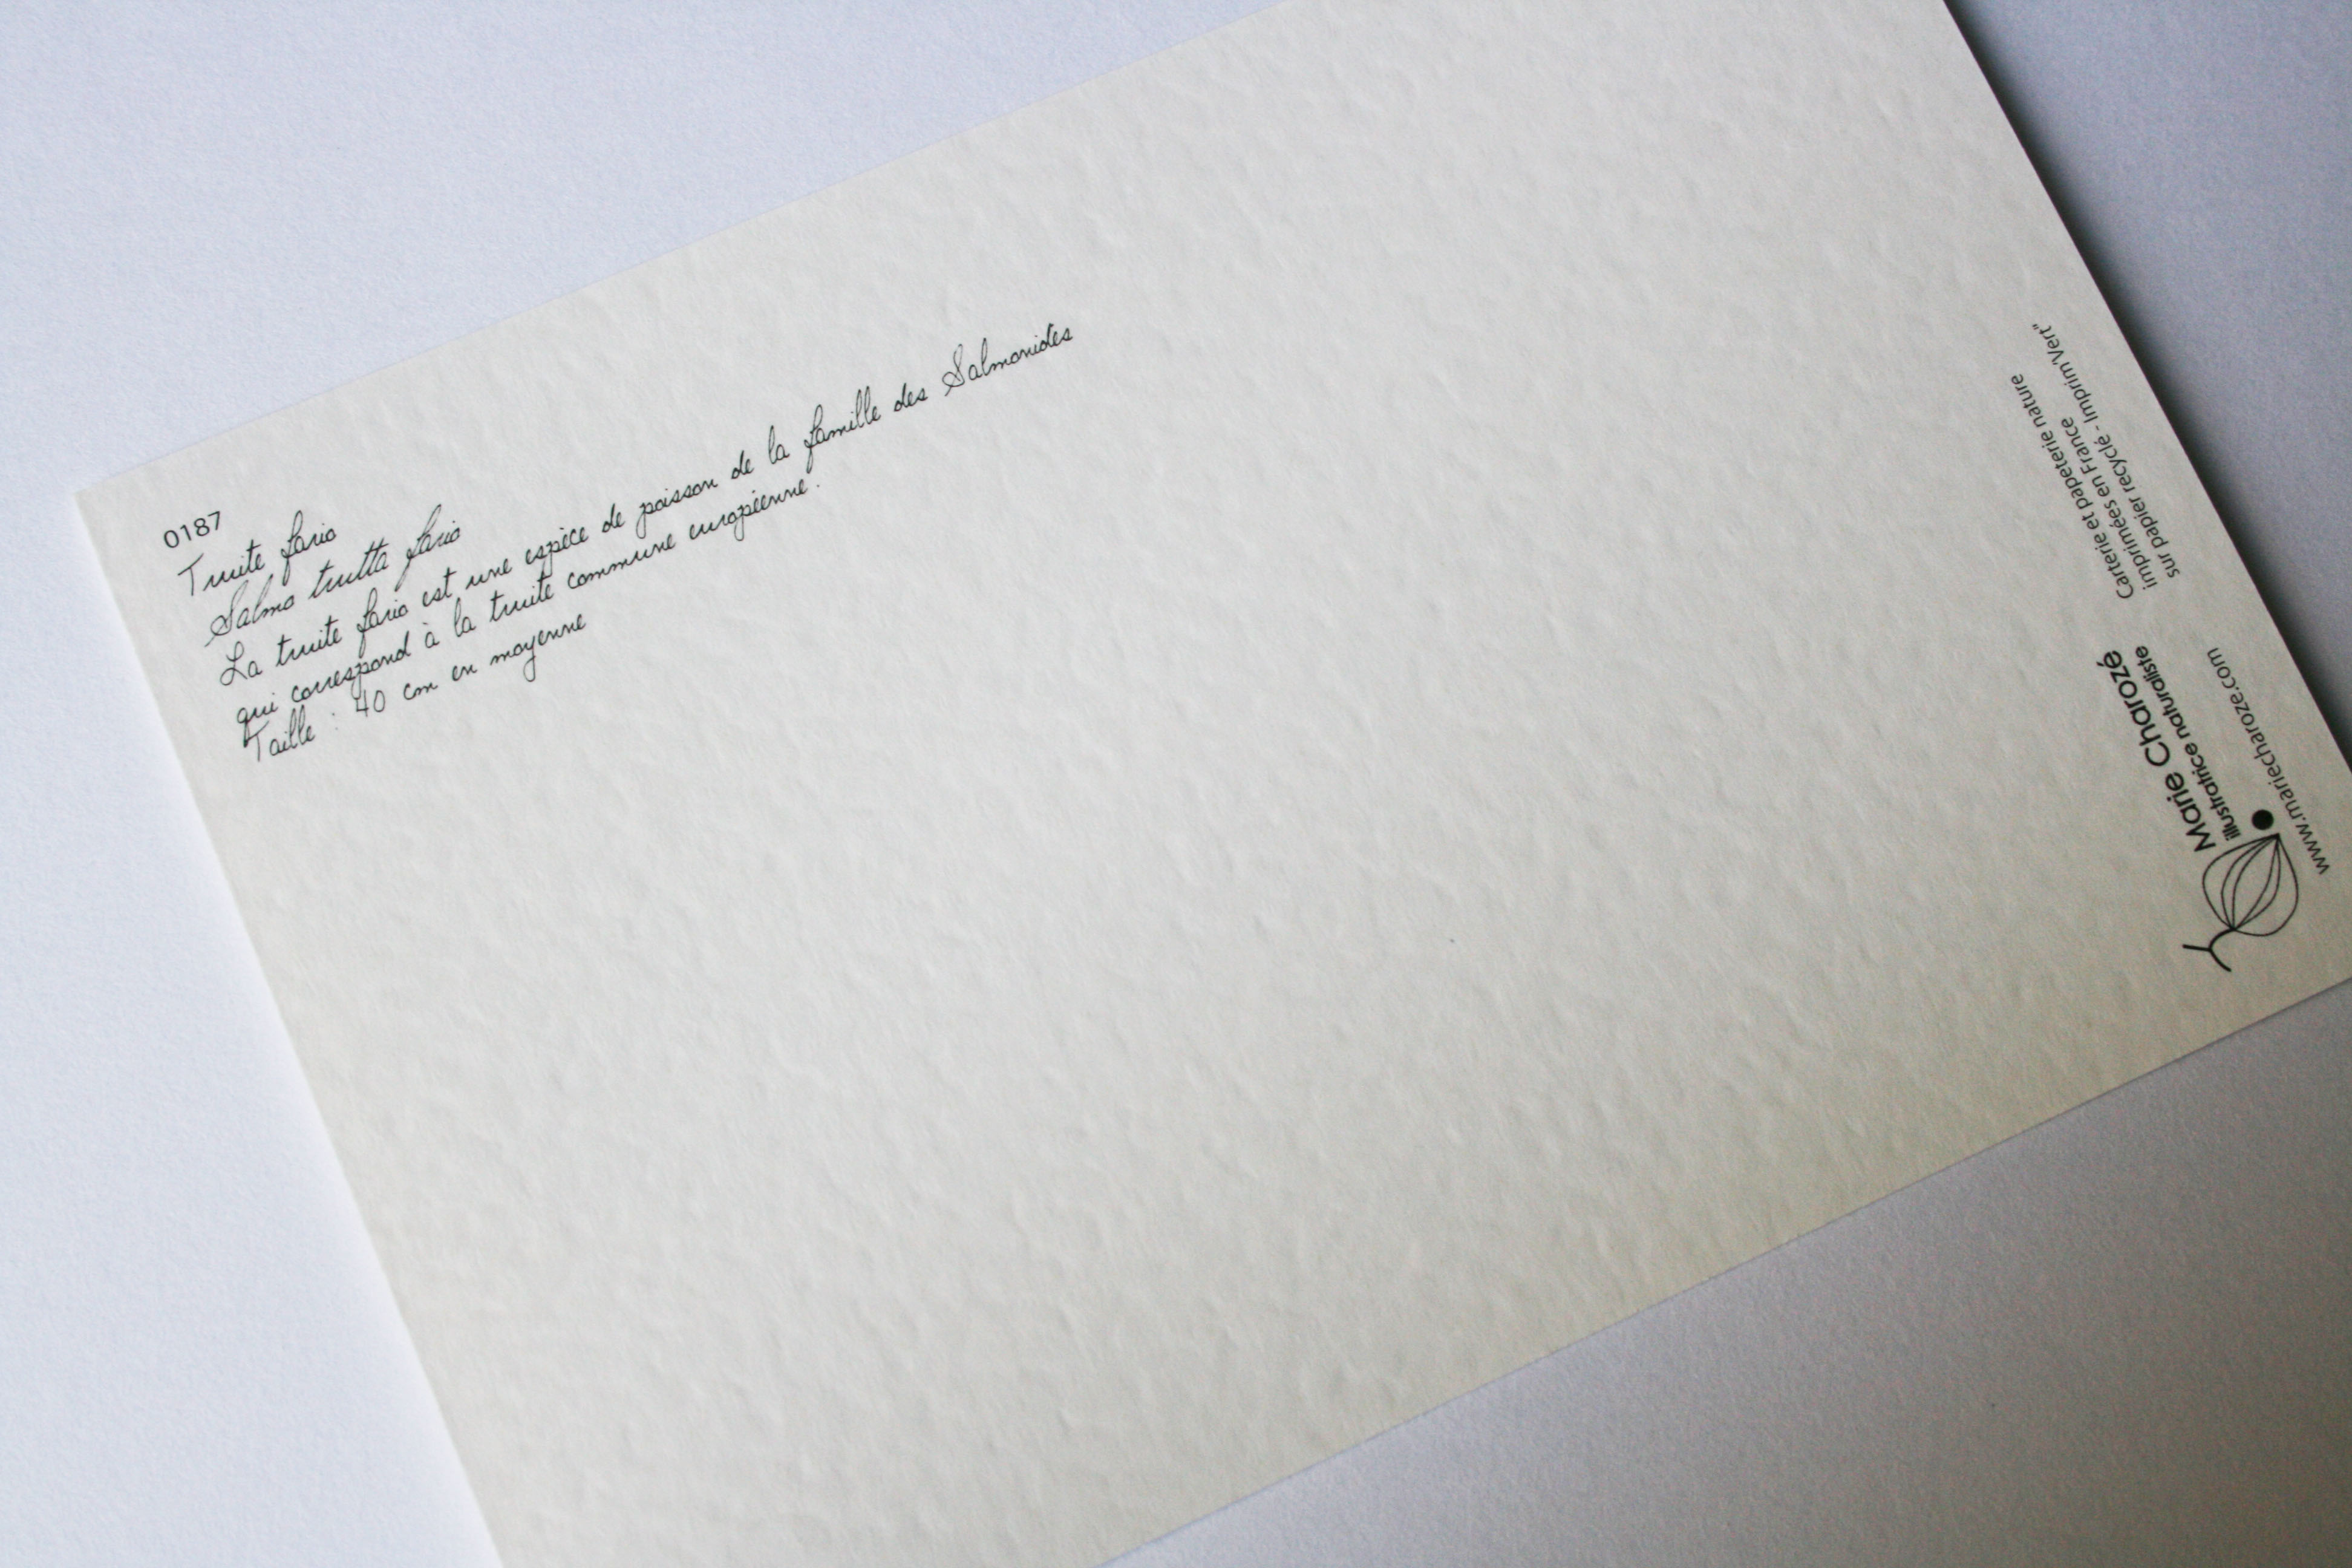 0187
Truite fario
Salmo trutta fario
La truite fario est une espèce de poisson de la famille des Salmonidés
qui correspond à la truite commune européenne.
Taille : 40 cm en moyenne
Carterie et papeterie nature
imprimées en France
sur papier recyclé - Imprim'Vert"
Marie Charozé
illustratrice naturaliste
www.mariecharoze.com